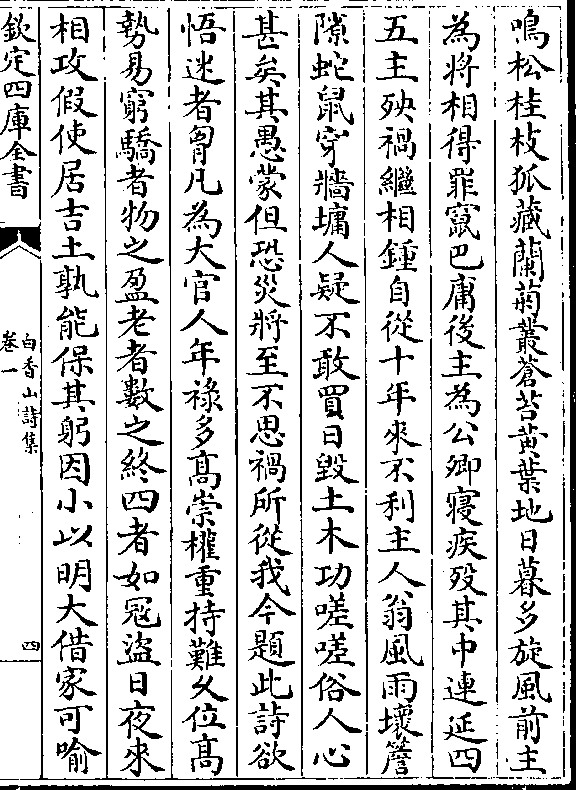 鳴松桂枝狐藏蘭菊叢蒼苔黄葉地日暮多旋風前主
為將相得罪竄巴庸後主為公卿寢疾殁其中連延四
五主殃禍繼相鍾自從十年來不利主人翁風雨壞簷
隙蛇鼠穿牆墉人疑不敢買日毀土木功嗟嗟俗人心
甚矣其愚蒙但恐災將至不思禍所從我今題此詩欲
悟迷者胷凡為大官人年祿多髙崇權重持難久位髙
勢易窮驕者物之盈老者數之終四者如冦盜日夜來
相攻假使居吉土孰能保其躬因小以明大借家可喻
欽定四庫全書
白香山詩集
卷一
四